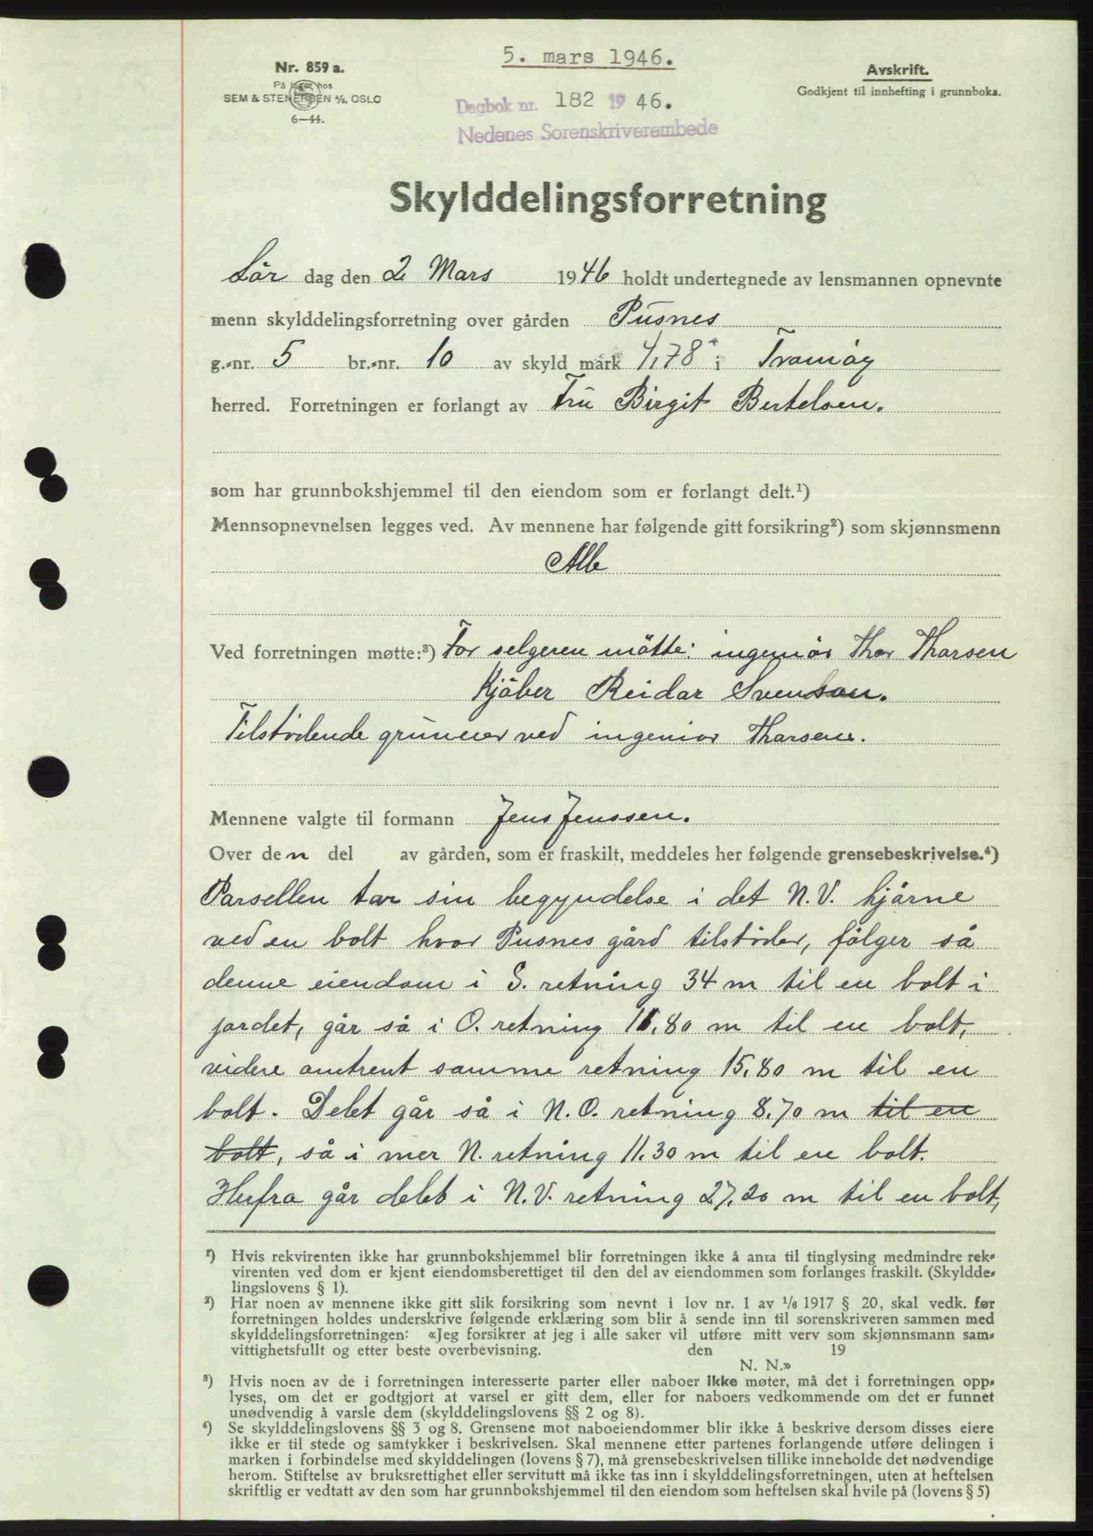 5. mars 1946.
Nr. 859 a.
På lager hos
SEM & STENERSEN A/S, OSLO
6—44.
Dagbok nr. 182 1946.
Nedenes Sorenskriverembede
Avskrift.
Godkjent til innhefting i grunnboka.
Skylddelingsforretning
Lör dag den 2 Mars 1946 holdt undertegnede av lensmannen opnevnte
menn skylddelingsforretning over gården Pusnes
g.-nr. 5 br.-nr. 10 av skyld mark 4,78 i Tromöy
herred. Forretningen er forlangt av Fru Birgit Bertelsen.
som har grunnbokshjemmel til den eiendom som er forlangt delt.¹)
Mennsopnevnelsen legges ved. Av mennene har følgende gitt forsikring²) som skjønnsmenn
Alle
Ved forretningen møtte:³) For selgeren mötte: ingeniör Thor Thorsen
Kjöber Reidar Svenson.
Tilstödende grunner ved ingeniör Thorsen.
Mennene valgte til formann Jens Jenssen.
Over den del av gården, som er fraskilt, meddeles her følgende grensebeskrivelse.⁴)
Parsellen tar sin begyndelse i det N.V. hjörne
ved en bolt hvor Pusnes gård tilstöder, fölger så
denne eiendom i S. retning 34 m til en bolt i
jordet, går så i O. retning 11,80 m til en bolt,
videre omtrent samme retning 15,80 m til en
bolt. Delet går så i N.O. retning 8,70 m til en
bolt, så i mer N. retning 11,30 m til en bolt.
Herfra går delet i N.V. retning 27,20 m til en bolt,
¹) Hvis rekvirenten ikke har grunnbokshjemmel blir forretningen ikke å anta til tinglysing medmindre rek-
virenten ved dom er kjent eiendomsberettiget til den del av eiendommen som forlanges fraskilt. (Skyldde-
lingslovens § 1).
²) Har noen av mennene ikke gitt slik forsikring som nevnt i lov nr. 1 av ¹/₆ 1917 § 20, skal vedk. før
forretningen holdes underskrive følgende erklæring som blir å sende inn til sorenskriveren sammen med
skylddelingsforretningen: «Jeg forsikrer at jeg i alle saker vil utføre mitt verv som skjønnsmann sam-
vittighetsfullt og etter beste overbevisning. den 19
N. N.»
³) Hvis noen av de i forretningen interesserte parter eller naboer ikke møter, må det i forretningen opp-
lyses, om det er godtgjort at varsel er gitt dem, eller for naboers vedkommende om det er funnet
unødvendig å varsle dem (skylddelingslovens §§ 2 og 8).
⁴) Se skylddelingslovens §§ 3 og 8. Grensene mot naboeiendommer blir ikke å beskrive dersom disses eiere
ikke er til stede og samtykker i beskrivelsen. Skal mennene etter partenes forlangende utføre delingen i
marken i forbindelse med skylddelingen (lovens § 7), må grensebeskrivelsen tillike inneholde det nødvendige
herom. Stiftelse av bruksrettighet eller servitutt må ikke tas inn i skylddelingsforretningen, uten at heftelsen
skriftlig er vedtatt av den som har grunnbokshjemmel til den eiendom som heftelsen skal hvile på (lovens § 5)